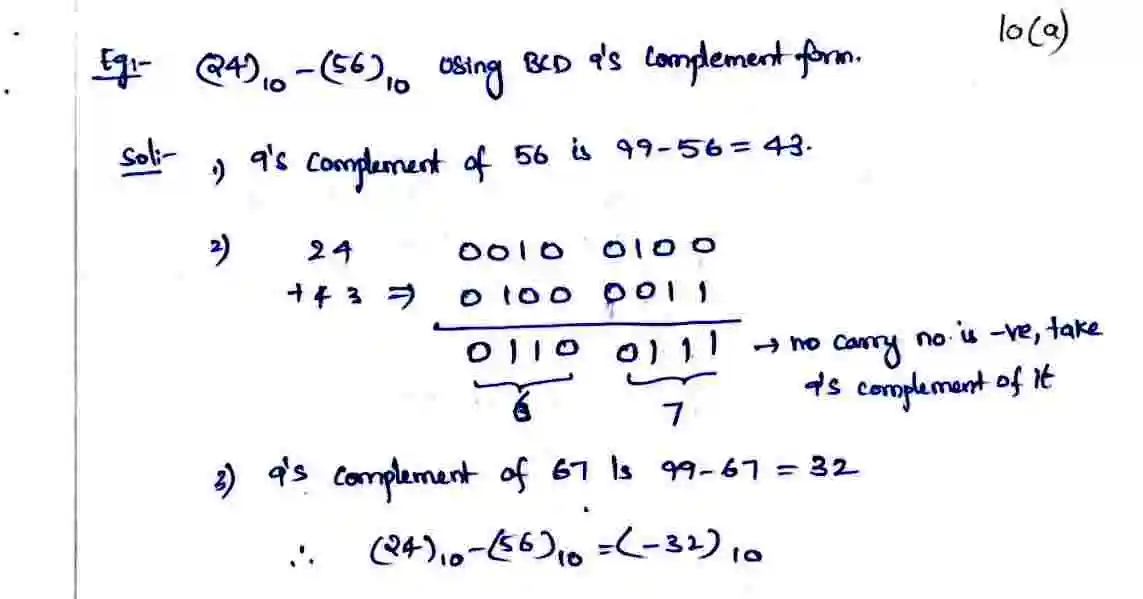 10(a)
Eg:- (24)10 - (56)10 using BCD 9's complement form.
Sol:- 1) 9's complement of 56 is 99-56 = 43.
2) 24 0010 0100
+43 ⇒ 0100 0011
0110 0111 → no carry no. is -ve, take
9's complement of it
6 7
3) 9's complement of 67 is 99-67 = 32
∴ (24)10 - (56)10 = (-32)10